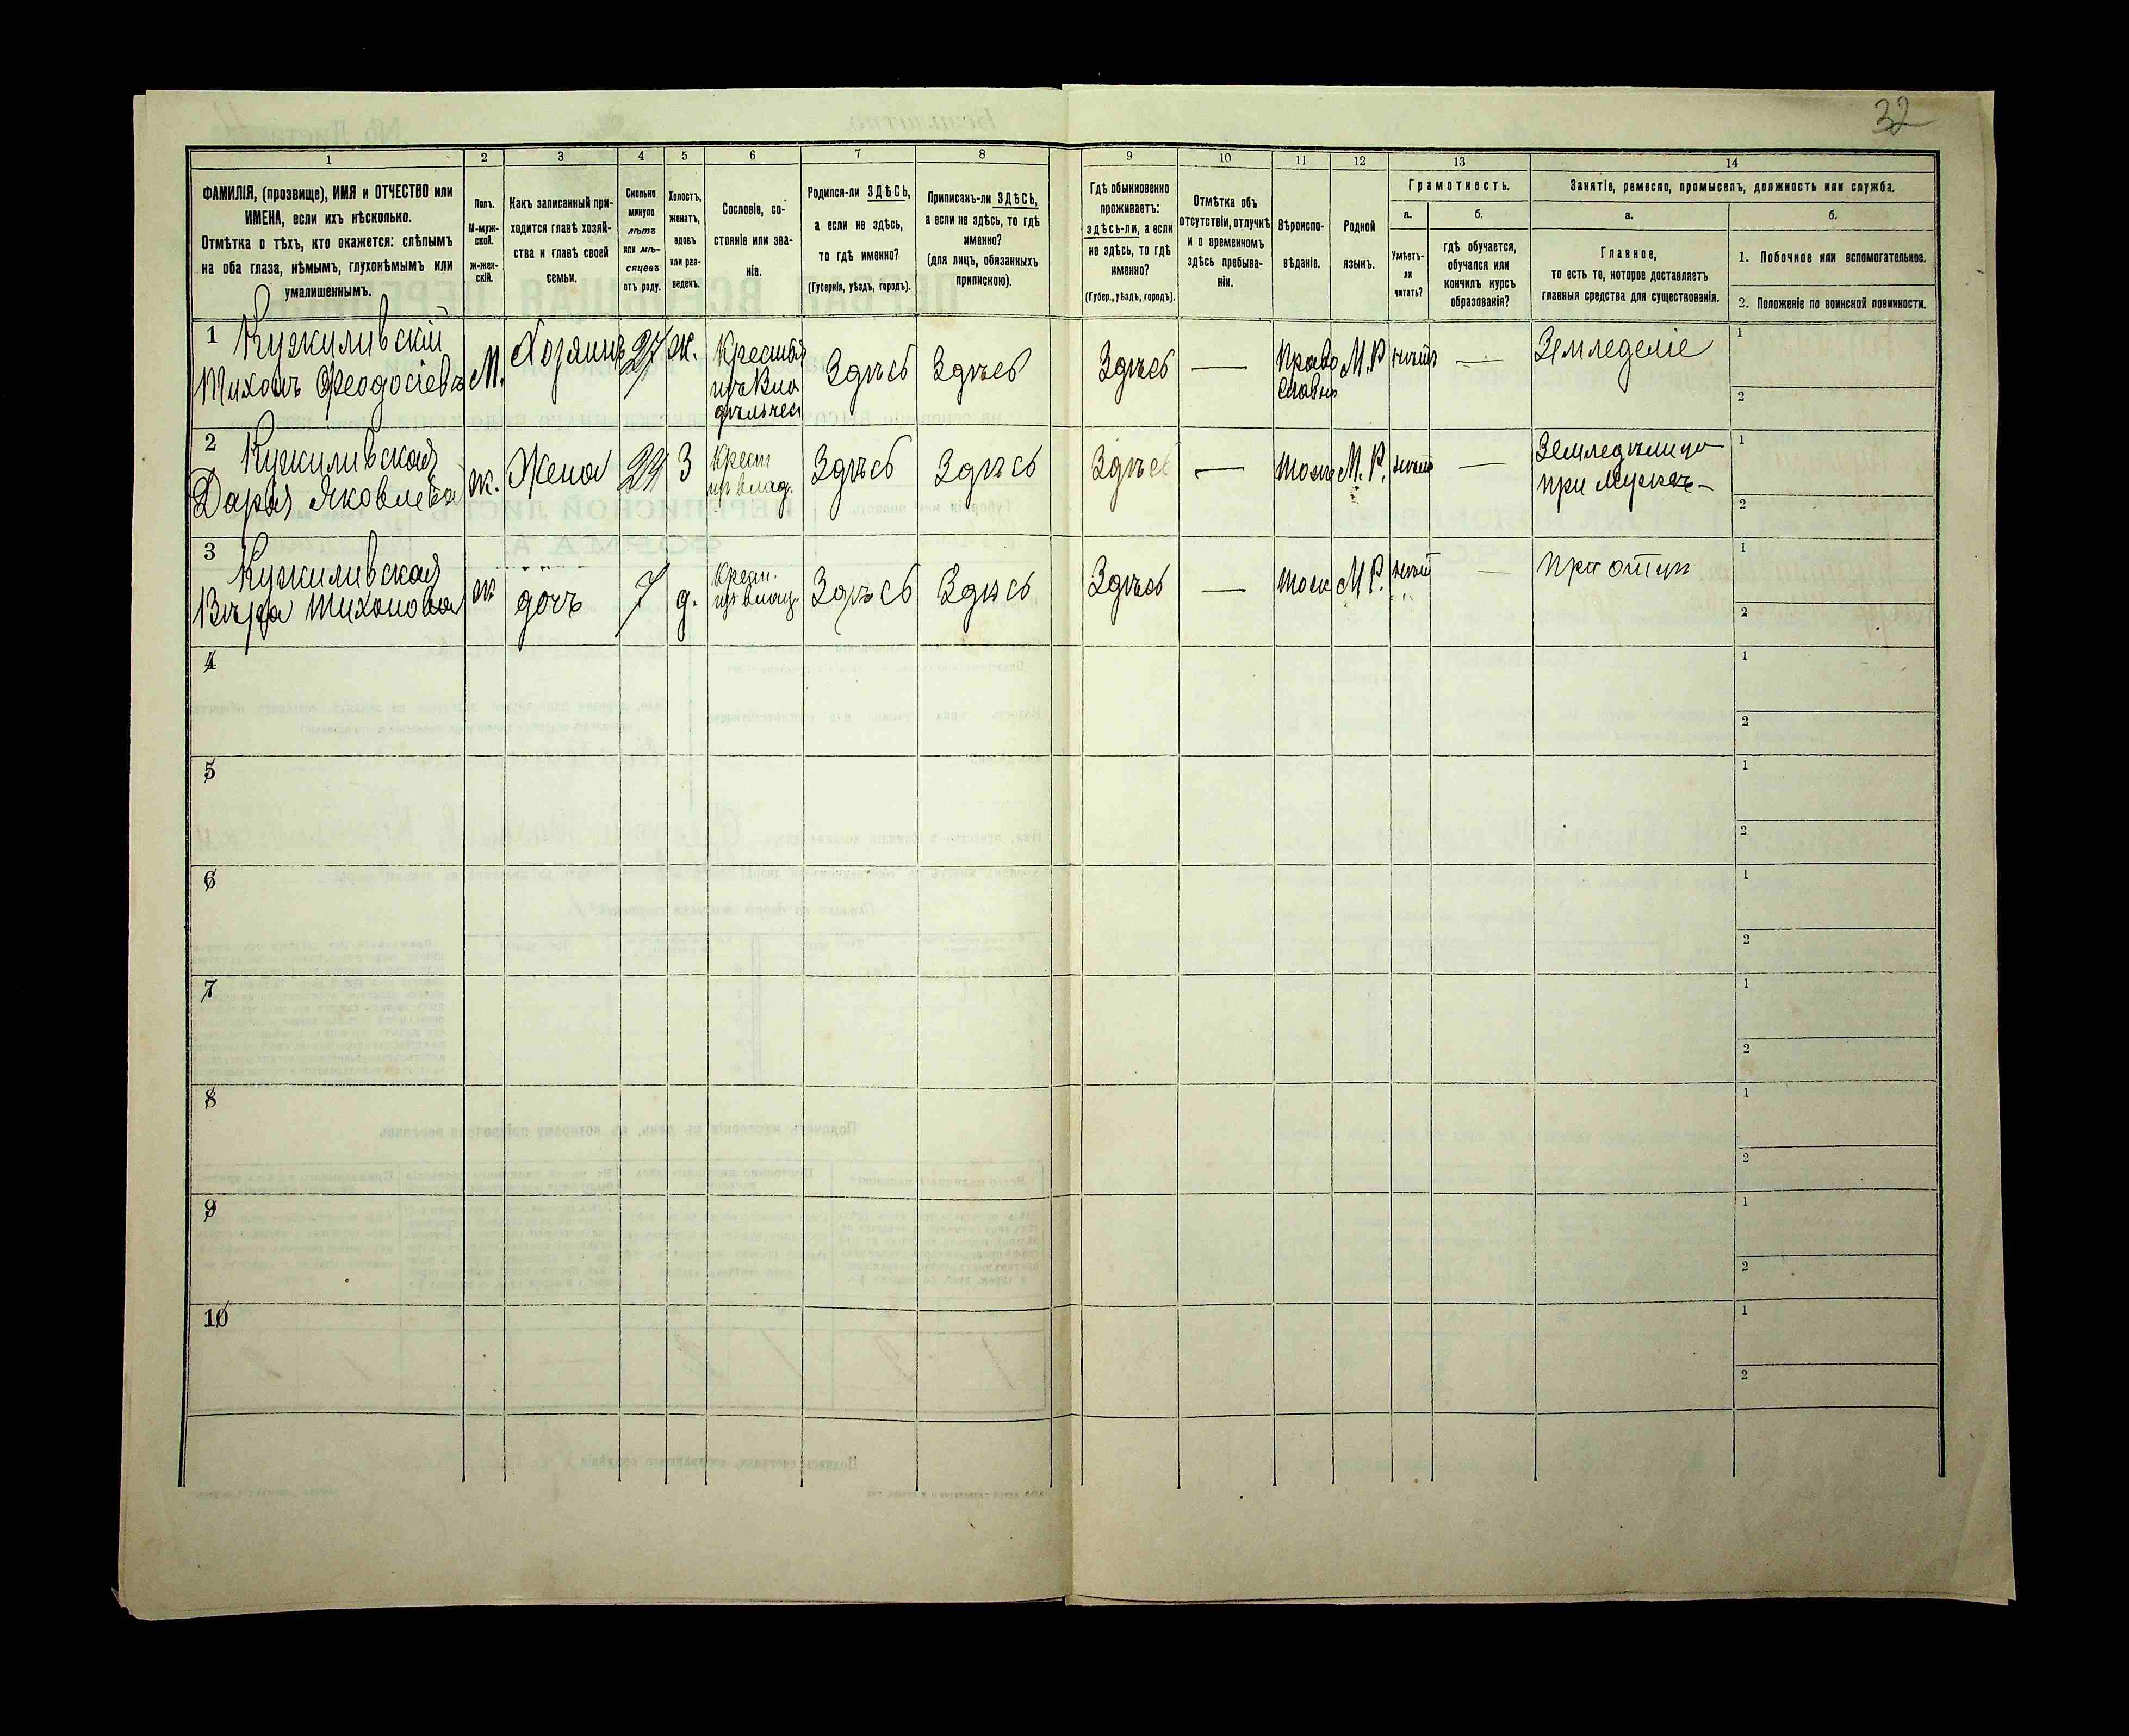 32
1
2
3
4
5
6
7
8
9
10
11
12
13
14
ФАМИЛІЯ, (прозвище), ИМЯ и ОТЧЕСТВО или
ИМЕНА, если ихъ нѣсколько.
Отмѣтка о тѣхъ, кто окажется: слѣпымъ
на оба глаза, нѣмымъ, глухонѣмымъ или
умалишеннымъ.
Полъ.
М-муж-
ской.
ж-жен-
скій.
Какъ записанный при-
ходится главѣ хозяй-
ства и главѣ своей
семьи.
Сколько
минуло
лѣтъ
или мѣ-
сяцевъ
отъ роду.
Холостъ,
женатъ,
вдовъ
или раз-
веденъ.
Сословіе, со-
стояніе или зва-
ніе.
Родился-ли ЗДѢСЬ,
а если не здѣсь,
то гдѣ именно?
(Губернія, уѣздъ, городъ).
Приписанъ-ли ЗДѢСЬ,
а если не здѣсь, то гдѣ
именно?
(для лицъ, обязанныхъ
припискою).
Гдѣ обыкновенно
проживаетъ:
здѣсь-ли, а если
не здѣсь, то гдѣ
именно?
(Губер., уѣздъ, городъ).
Отмѣтка объ
отсутствіи, отлучкѣ
и о временномъ
здѣсь пребыва-
ніи.
Вѣроиспо-
вѣданіе.
Родной
языкъ.
Грамотность.
а.
Умѣетъ-
ли
читать?
б.
гдѣ обучается,
обучался или
кончилъ курсъ
образованія?
Занятіе, ремесло, промыселъ, должность или служба.
а.
Главное,
то есть то, которое доставляетъ
главныя средства для существованія.
б.
1. Побочное или вспомогательное.
2. Положеніе по воинской повинности.
1
Кужиливскій
Тихонъ Феодосіевъ
М.
Хозяинъ
27
ж.
Здѣсь
Здѣсь
Здѣсь
—
Право
славн
М.Р
—
Земледеліе
1
2
2
Кужиливская
Дарья Яковлева
ж.
Жена
24
З
Крест
изъ влад.
Здѣсь
Здѣсь
Здѣсь
—
тоже
М. Р.
—
при мужѣ –
1
2
3
Кужиливская
Вѣра Тихонова
ж
дочъ
7
д.
Крест.
изъ влад.
Здѣсь
Здѣсь
Здѣсь
—
тоже
М Р.
—
при отцѣ
1
2
4
1
2
5
1
2
6
1
2
7
1
2
8
1
2
9
1
2
10
1
2